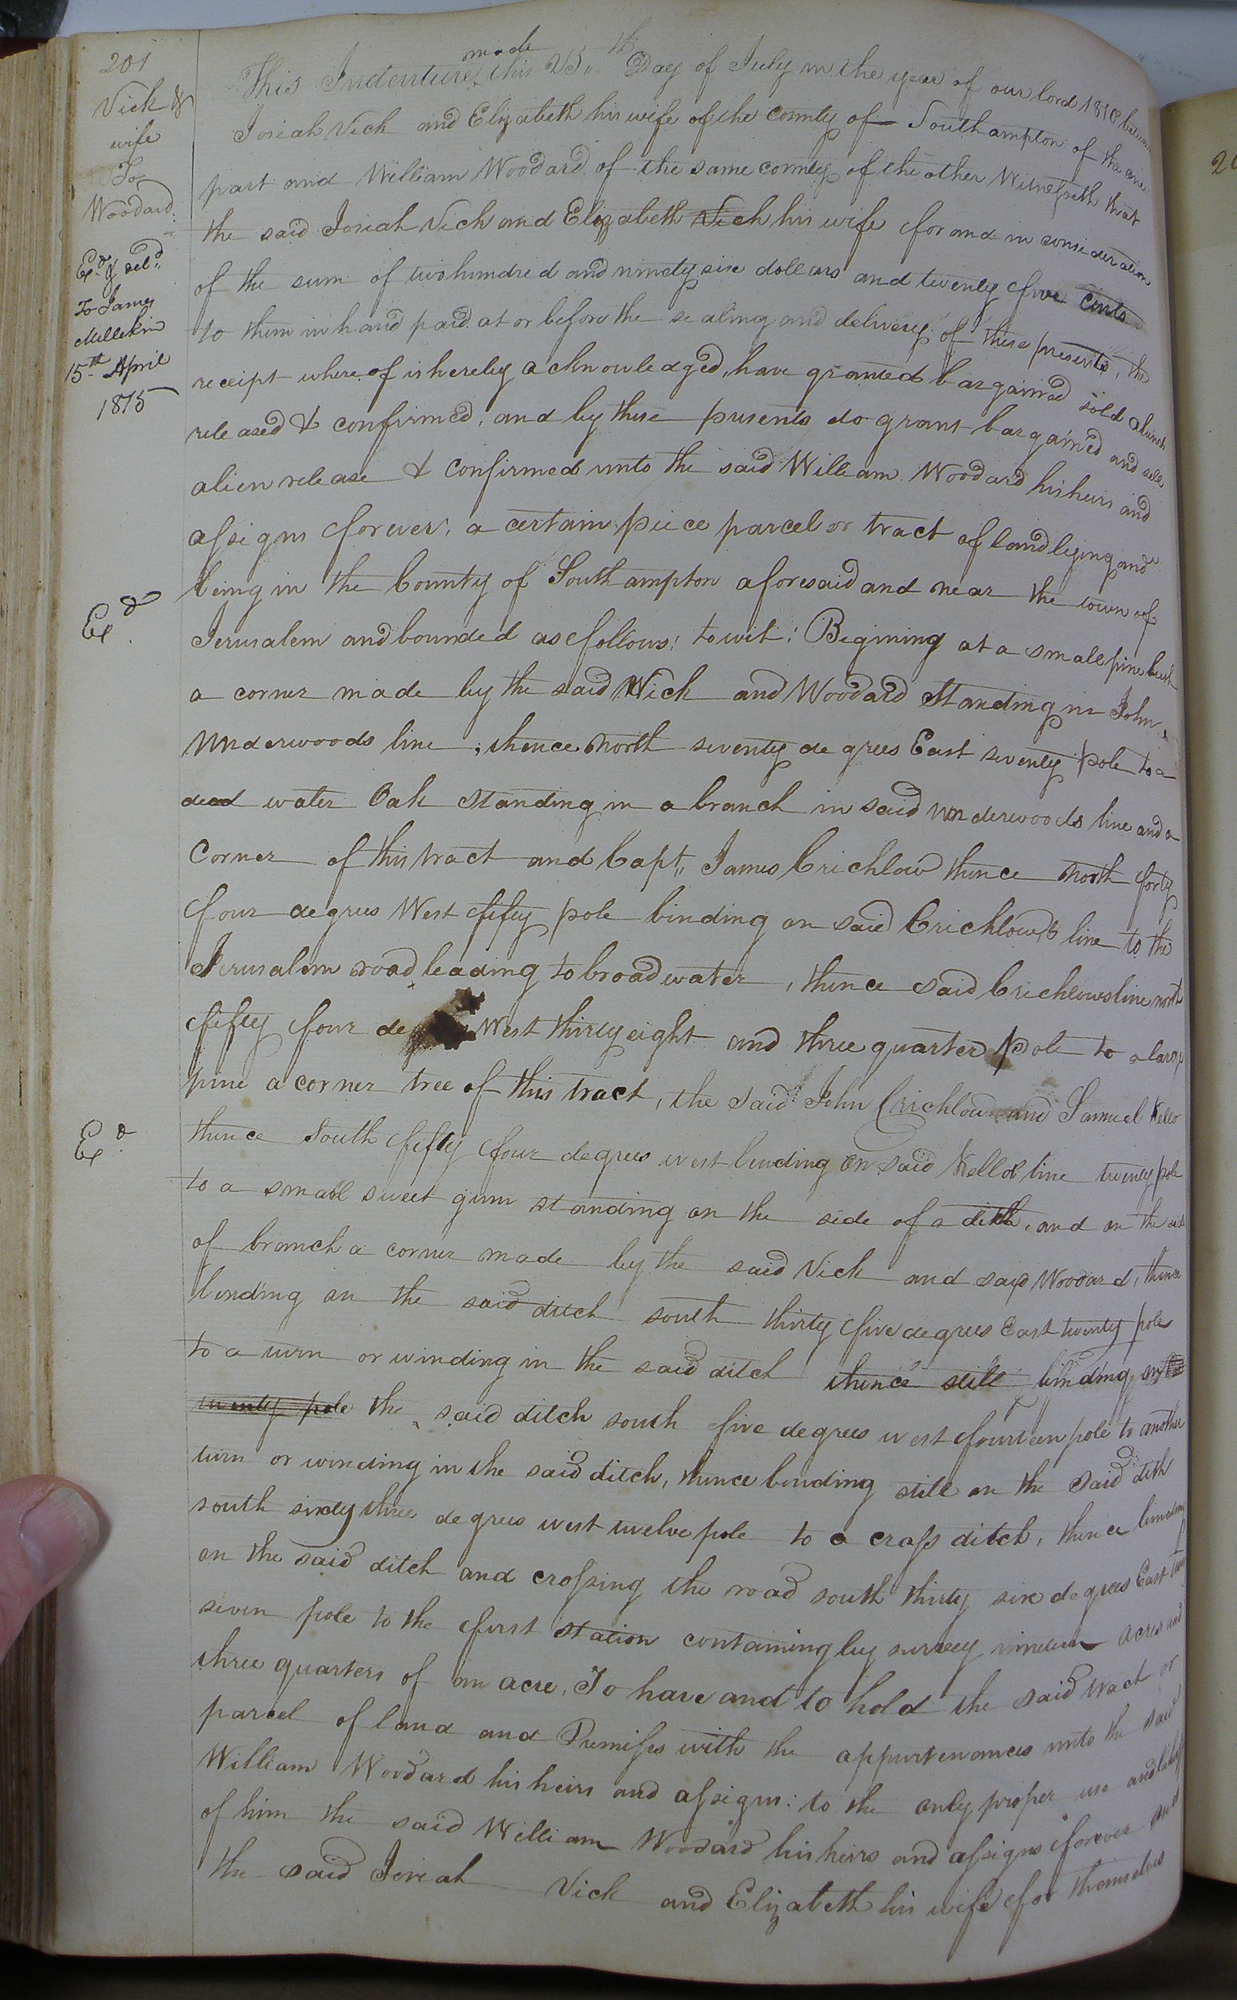 201
Vick &
wife
To
Woodard
Exd. & deld.
To James
Millekin
15th April
1815
This Indenture made this 25th Day of July in the year of our lord 1810 between
Josiah Vick and Elizabeth his wife of the county of Southampton of the one
part and William Woodard of the same county of the other Witnesseth that
the said Josiah Vick and Elizabeth Vick his wife for and in consideration
of the sum of two hundred and ninety six dollars and twenty five cents
to them in hand paid at or before the sealing and delivery of these presents, the
receipt where of is hereby acknowledged, have granted bargained sold aliened
released & confirmed, and by these presents do grant bargained and sell
alien release & confirmed unto the said William Woodard his heirs and
assigns forever, a certain piece parcel or tract of land lying and
being in the County of Southampton aforesaid and near the town of
Exd.
Jerusalem and bounded as follows: towit: Begining at a small pine bush
a corner made by the said Vick and Woodard Standing in John
Underwoods line, thence North seventy degrees East seventy pole to a
dead water Oak standing in a branch in said Underwoods line and a
Corner of this tract and Capt,, James Crichlow thence North forty
four degrees West fifty pole binding on said Crichlows line to the
Jerusalem road leading to broadwater, thence said Crichlows line north
fifty four de West thirty eight and three quarter pole to a large
pine a corner tree of this tract, the said John Crichlow and Samuel Kello
Exd.
thence South fifty four degrees west binding on said Kellos line twenty pole
to a small sweet gum standing on the side of a ditch, and on the side
of branch a corner made by the said Vick and said Woodard, thence
binding on the said ditch south thirty five degrees East twenty pole
to a turn or winding in the said ditch thence still binding on the
twenty pole the said ditch south five degrees west fourteen pole to another
turn or winding in the said ditch, thence binding still on the said dith
south sixty three degrees west twelve pole to a crass ditch, thence binding
on the said ditch and crossing the road south thirty six degrees East
seven pole to the first station containing by survey nineteen acres and
three quarters of an acre, To have and to hold the said tract or
parcel of land and Premises with the appurtenances unto the said
William Woodard his heirs and assigns: to the only proper use and behoof
of him the said William Woodard his heirs and assigns forever and
the said Josiah Vick and Elizabeth his wife for themselves